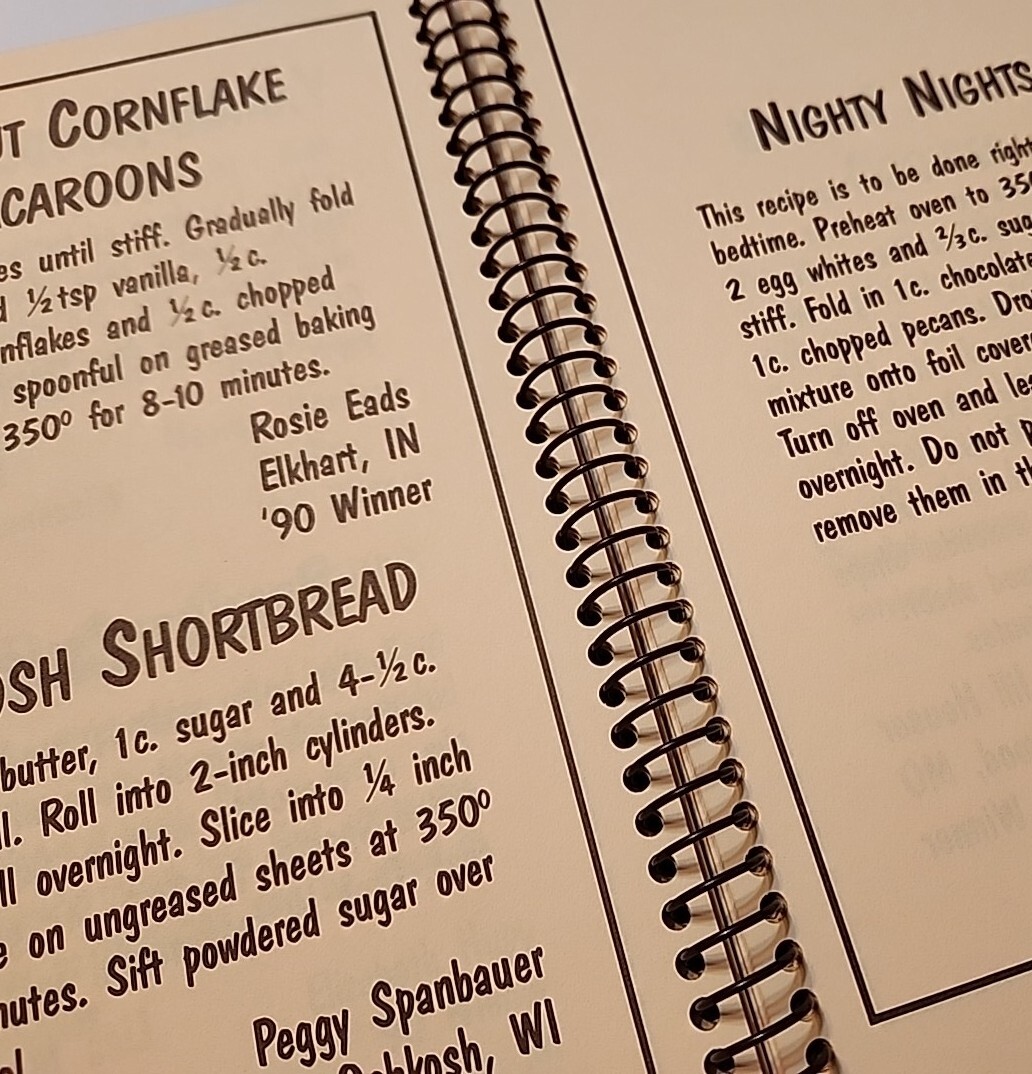 CORNFLAKE
CAROONS
es until stiff. Gradually fold
½ tsp vanilla, ½ c.
nflakes and ½ c. chopped
spoonful on greased baking
350° for 8-10 minutes.
Rosie Eads
Elkhart, IN
'90 Winner
OSH SHORTBREAD
butter, 1c. sugar and 4-½ c.
l. Roll into 2-inch cylinders.
ll overnight. Slice into ¼ inch
e on ungreased sheets at 350°
nutes. Sift powdered sugar over
Peggy Spanbauer
Oshkosh, WI
NIGHTY NIGHTS
This recipe is to be done right
bedtime. Preheat oven to 350
2 egg whites and ⅔ c. sug
stiff. Fold in 1c. chocolate
1c. chopped pecans. Dro
mixture onto foil cover
Turn off oven and le
overnight. Do not p
remove them in th